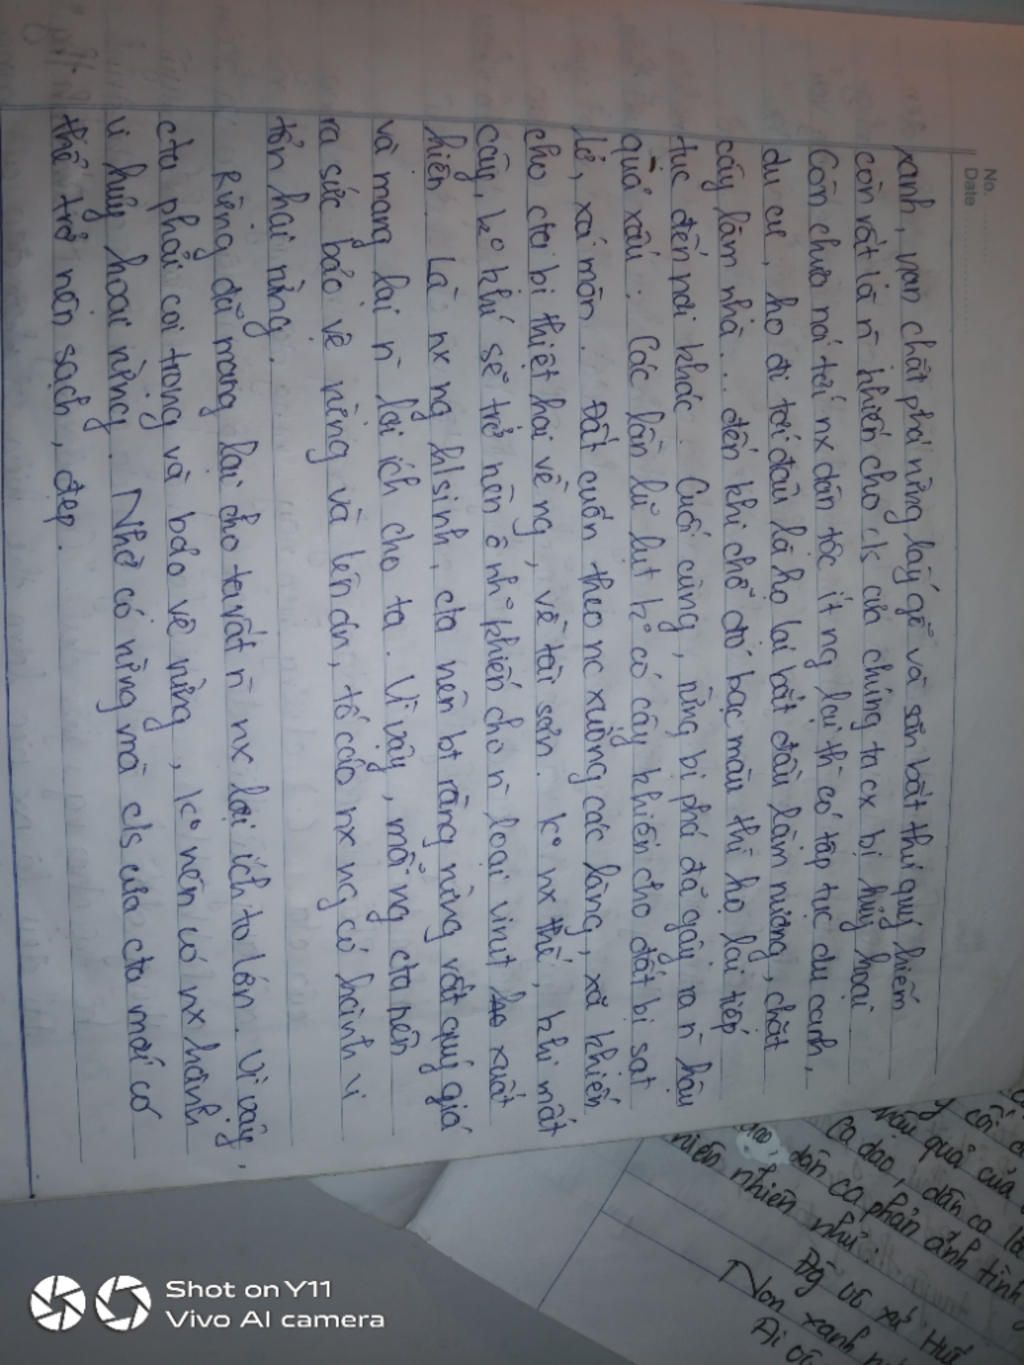 No.
Date
xanh, vạn chặt phá rừng lấy gỗ và săn bắt thú quý hiếm
còn rất là n̄ khiến cho c/s của chúng ta cx bị hủy hoại
Còn chưa nói tới nx dân tộc ít ng lại thì có tập tục du canh,
du cư, họ đi tới đâu là họ lại bắt đầu làm nương, chặt
cây làm nhà... đến khi chỗ đó bạc màu thì họ lại tiếp
tục đến nơi khác. Cuối cùng, rừng bị phá đã gây ra n̄ hậu
quả xấu: Các lần lũ lụt k° có cây khiến cho đất bị sạt
lở, xói mòn. Đất cuốn theo nc xuống các làng, xã khiến
cho cta bị thiệt hại về ng, về tài sản. k° nx thế, khi mất
cây, k° khí sẽ trở nên ô nh° khiến cho n̄ loại virut xuất
hiện. Là nx ng hlsinh, cta nên bt rằng rừng rất quý giá
và mang lại n̄ lợi ích cho ta. Vì vậy, mỗi ng cta nên
ra sức bảo vệ rừng và lên án, tố cáo nx ng có hành vi
tổn hại rừng.
Rừng đã mang lại cho ta rất n̄ nx lợi ích to lớn. Vì vậy,
cta phải coi trọng và bảo vệ rừng, k° nên có nx hành
vi hủy hoại rừng. Nhờ có rừng mà c/s của cta mới có
thể trở nên sạch, đẹp.
quả của
ca dao, dân ca
dân ca phản ánh tình
nhiên như:
Đg vô xứ Huế
Non xanh
Ai vô
Shot on Y11
Vivo AI camera